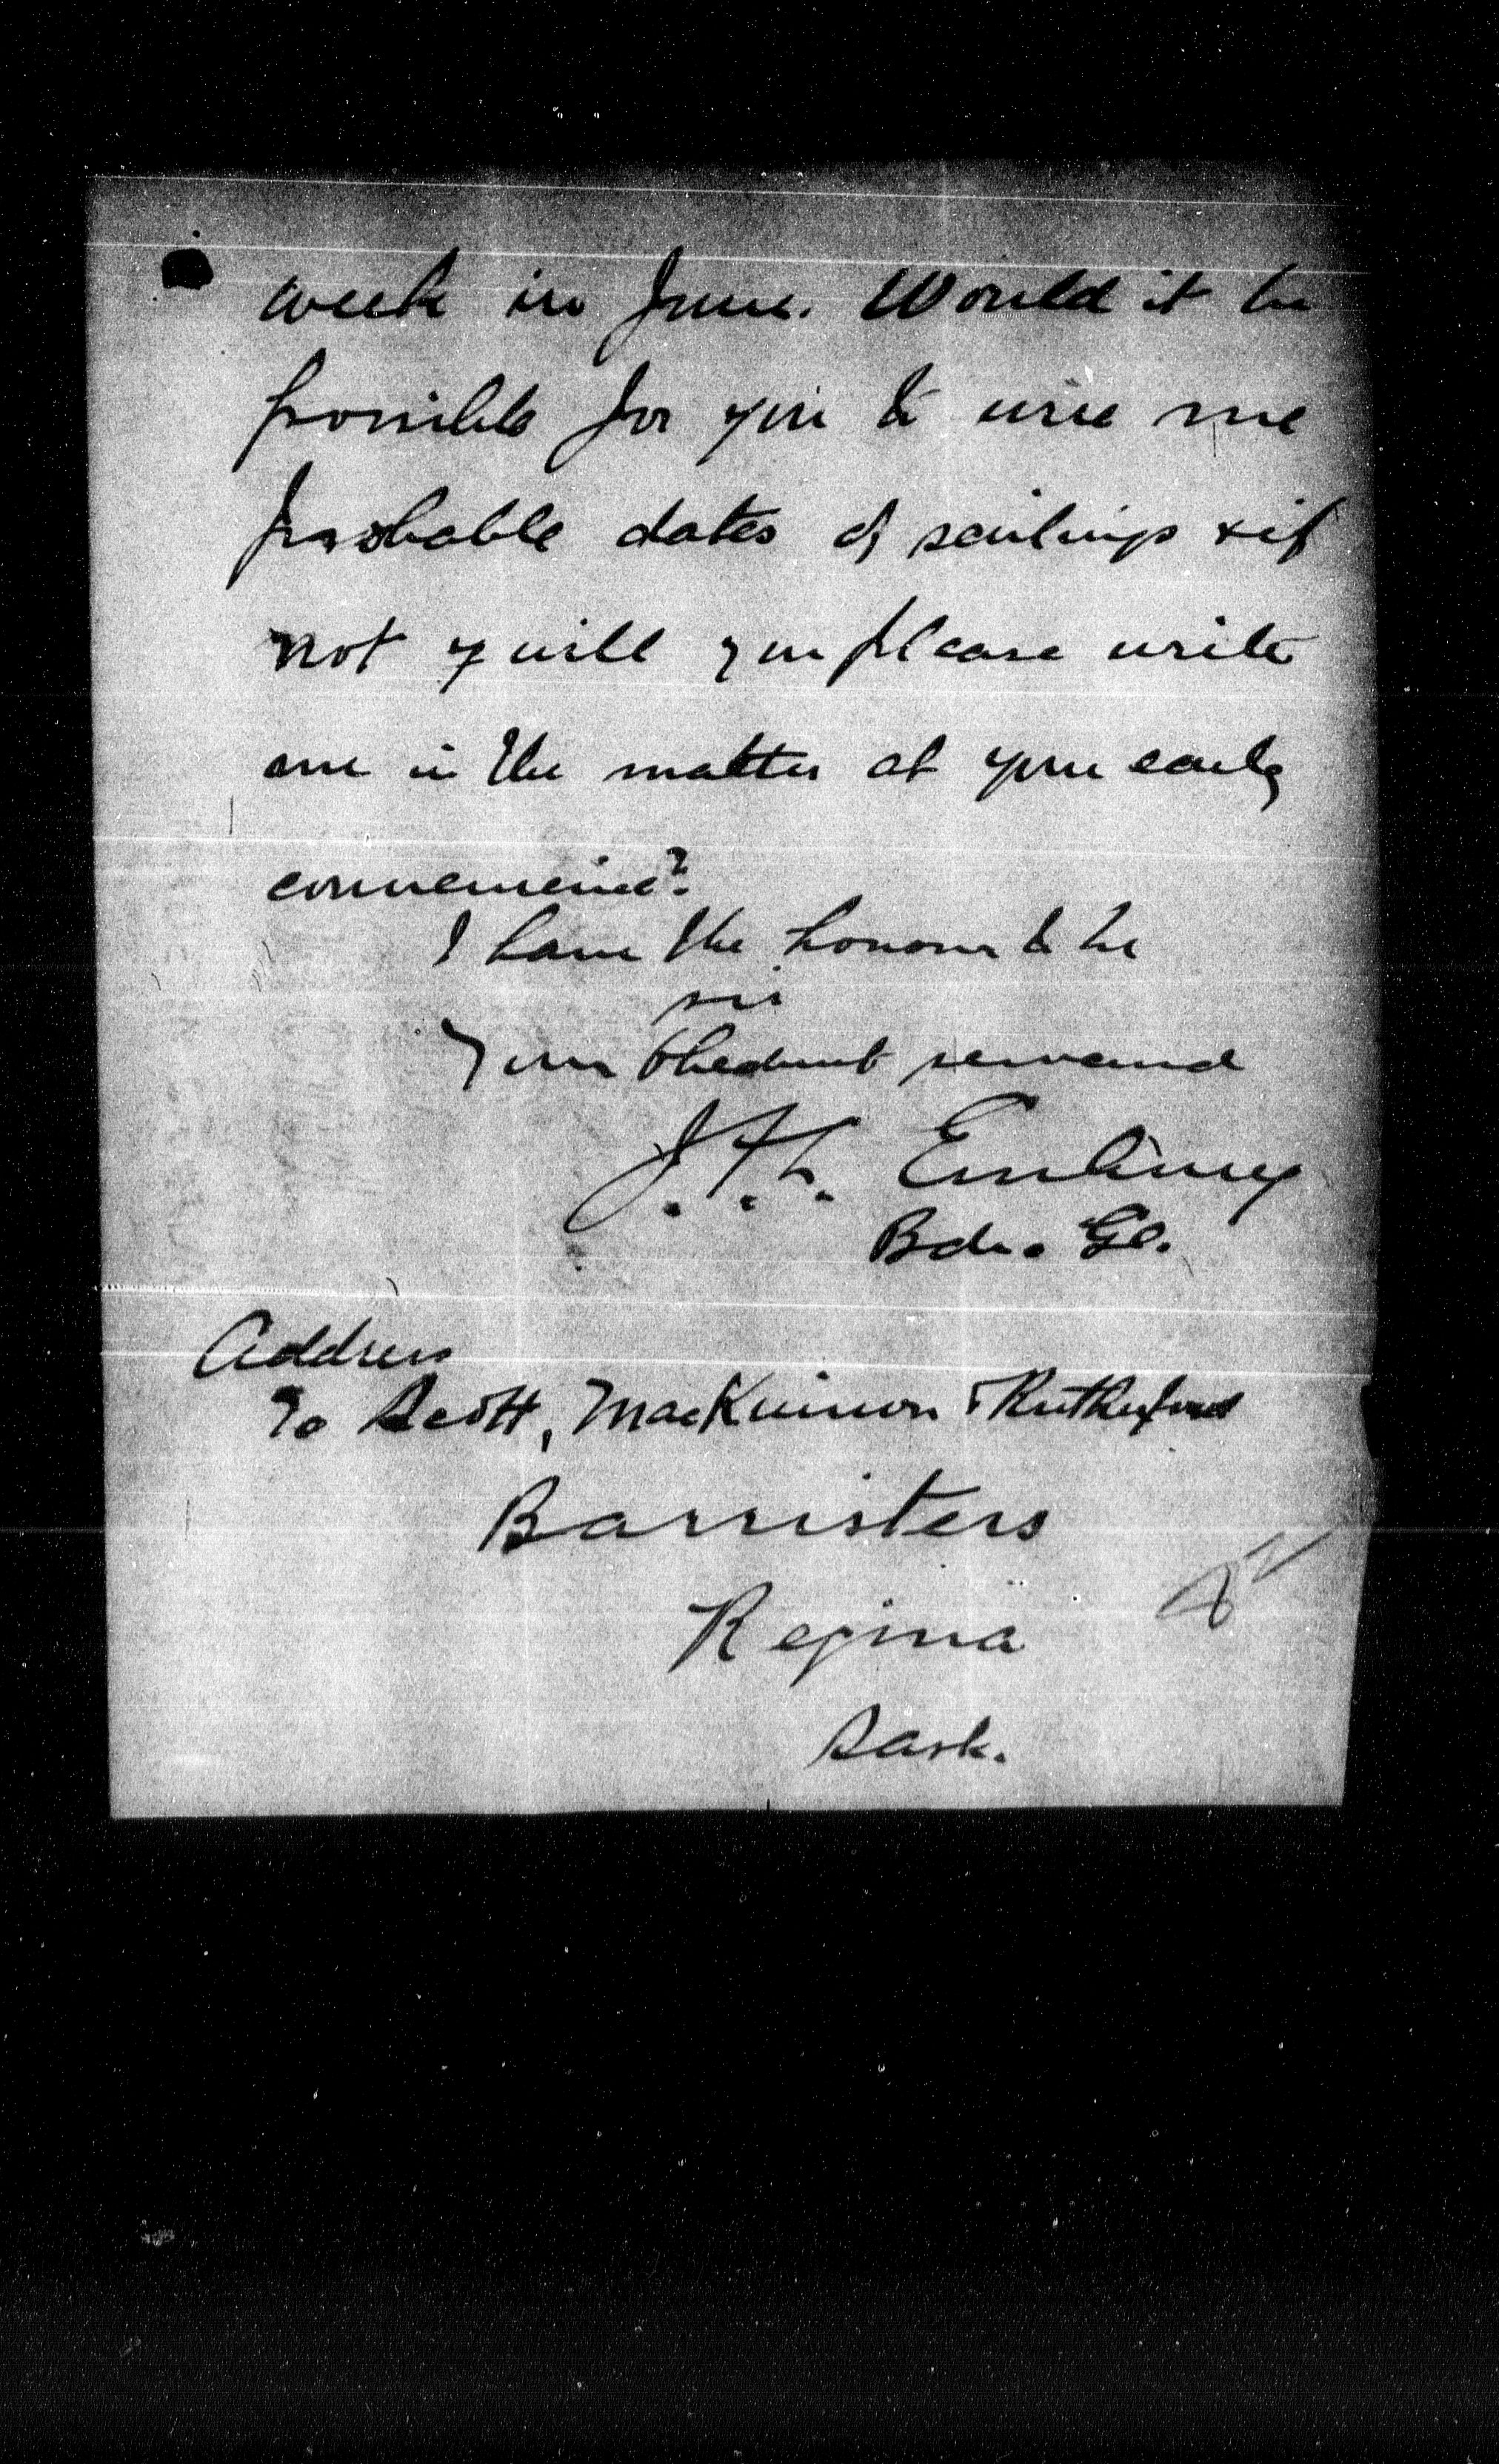 week in June. Would it be
possible for you to wire me
probable dates of sailings & if
not will you please write
me in the matter at your early
convenience?
I have the honour to be
sir
Your obedient servand
J.F.L. Embury
Bdr. Gl.
Address
To Scott, MacKinnon & Rutherford
Barristers
Regina
Sask.